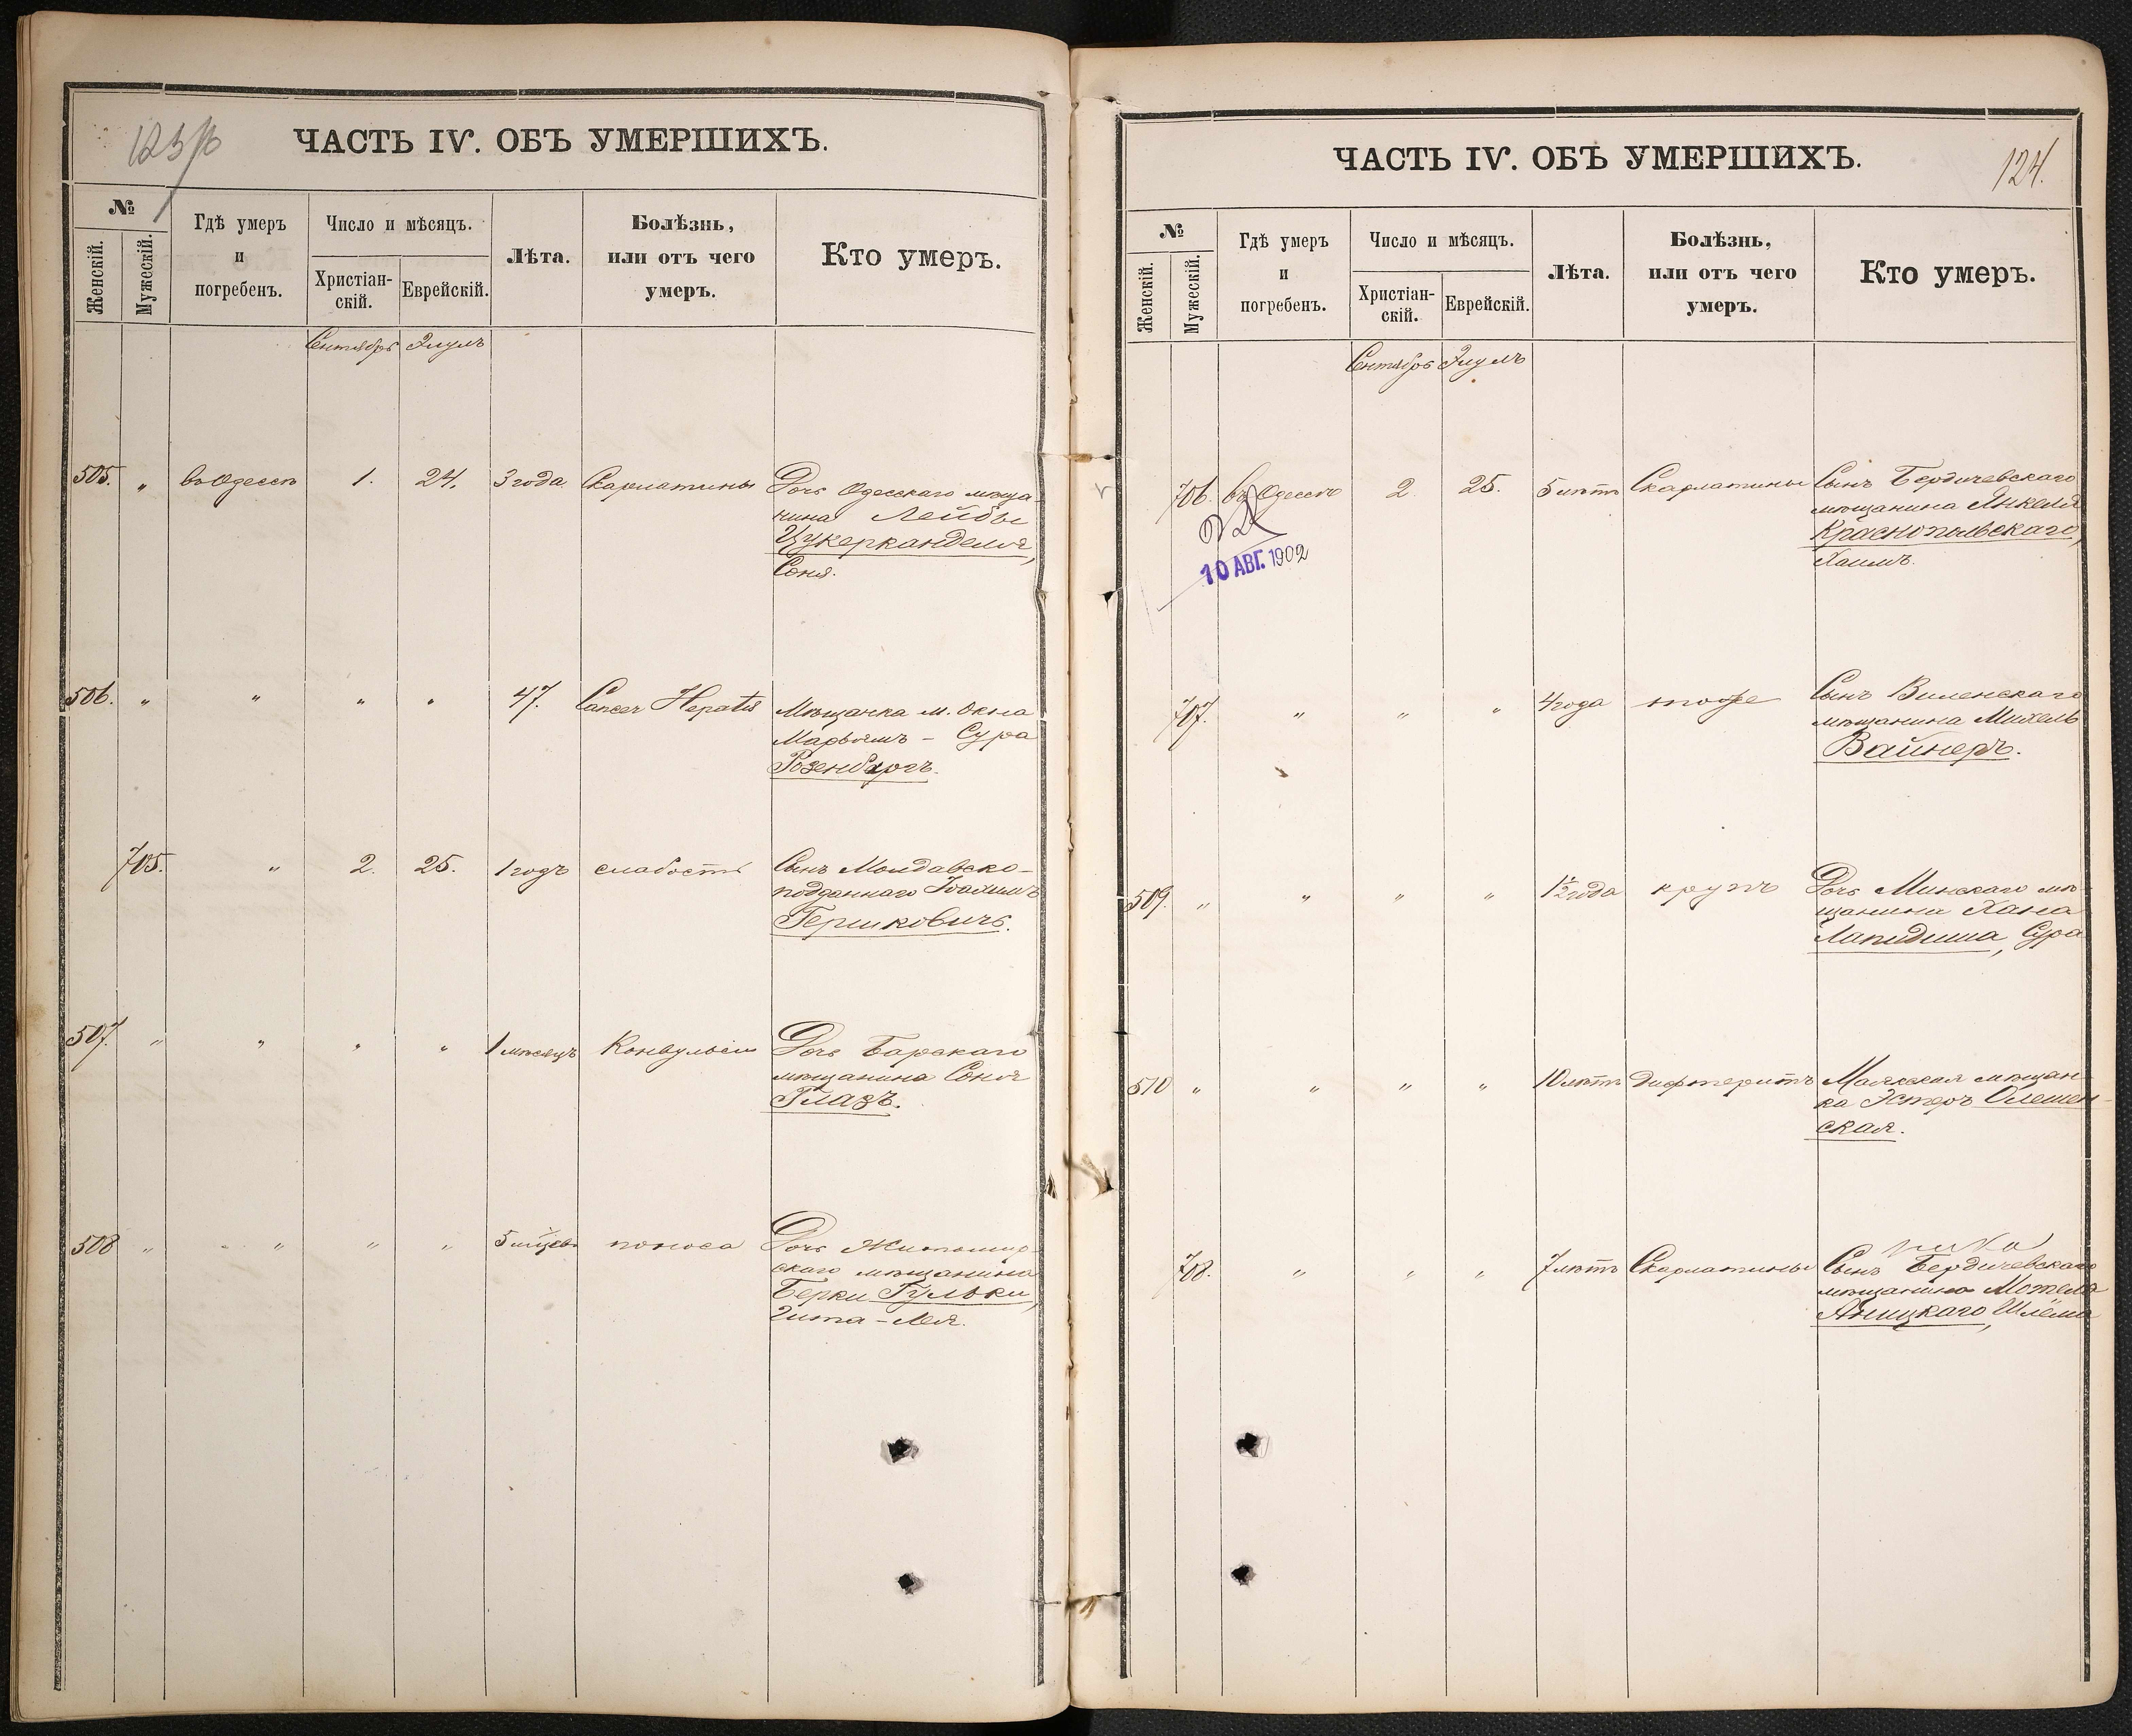 123/б
ЧАСТЬ IV. ОБЪ УМЕРШИХЪ.
№
Женскій.
Мужескій.
Гдѣ умеръ
и
погребенъ.
Число и мѣсяцъ.
Христіан-
скій.
Еврейскій.
Лѣта.
Болѣзнь,
или отъ чего
умеръ.
Кто умеръ.
Сентябрь Элулъ
505. „ въ Одессѣ 1. 24. 3 года Скарлатины Дочь Одесскаго мѣща-
нина Лейбы
Цукерканделя,
Соня.
506. „ „ „ „ 47. Cancer Hepatis Мѣщанка м. Окна
Марьямъ - Сура
Розенбергъ.
705. „ 2. 25. 1 годъ слабость Сынъ Молдавско-
подданнаго Іоахимъ
Гершковичъ.
507. „ „ „ „ 1 мѣсяцъ Конвульсіи Дочь Барскаго
мѣщанина Соня
Глазъ.
508 „ „ „ „ 5 мѣсцевъ поноса Дочь Житомир-
скаго мѣщанина
Берки Гульки,
Гита - Лея.
ЧАСТЬ IV. ОБЪ УМЕРШИХЪ.
124.
№
Женскій.
Мужескій.
Гдѣ умеръ
и
погребенъ.
Число и мѣсяцъ.
Христіан-
скій.
Еврейскій.
Лѣта.
Болѣзнь,
или отъ чего
умеръ.
Кто умеръ.
Сентябрь Элулъ
706. въ Одессѣ 2. 25. 5 лѣтъ Скарлатины Сынъ Бердичевскаго
мѣщанина Янкеля
Краснопольскаго,
Хаимъ.
10 АВГ. 1902
707. „ „ „ 4 года тоже Сынъ Виленскаго
мѣщанина Михель
Вайнеръ.
509. „ „ „ „ 1½ года крупъ Дочь Минскаго мѣ-
щанина Хана
Лапидиша, Сура
510 „ „ „ „ 10 лѣтъ Дифтеритъ Маякская мѣщан-
ка Эстеръ Олешен-
ская.
708. „ „ „ 7 лѣтъ Скарлатины Сынъ Бердичевскаго
мѣщанина Мотеля
Аницкаго, Шлёма